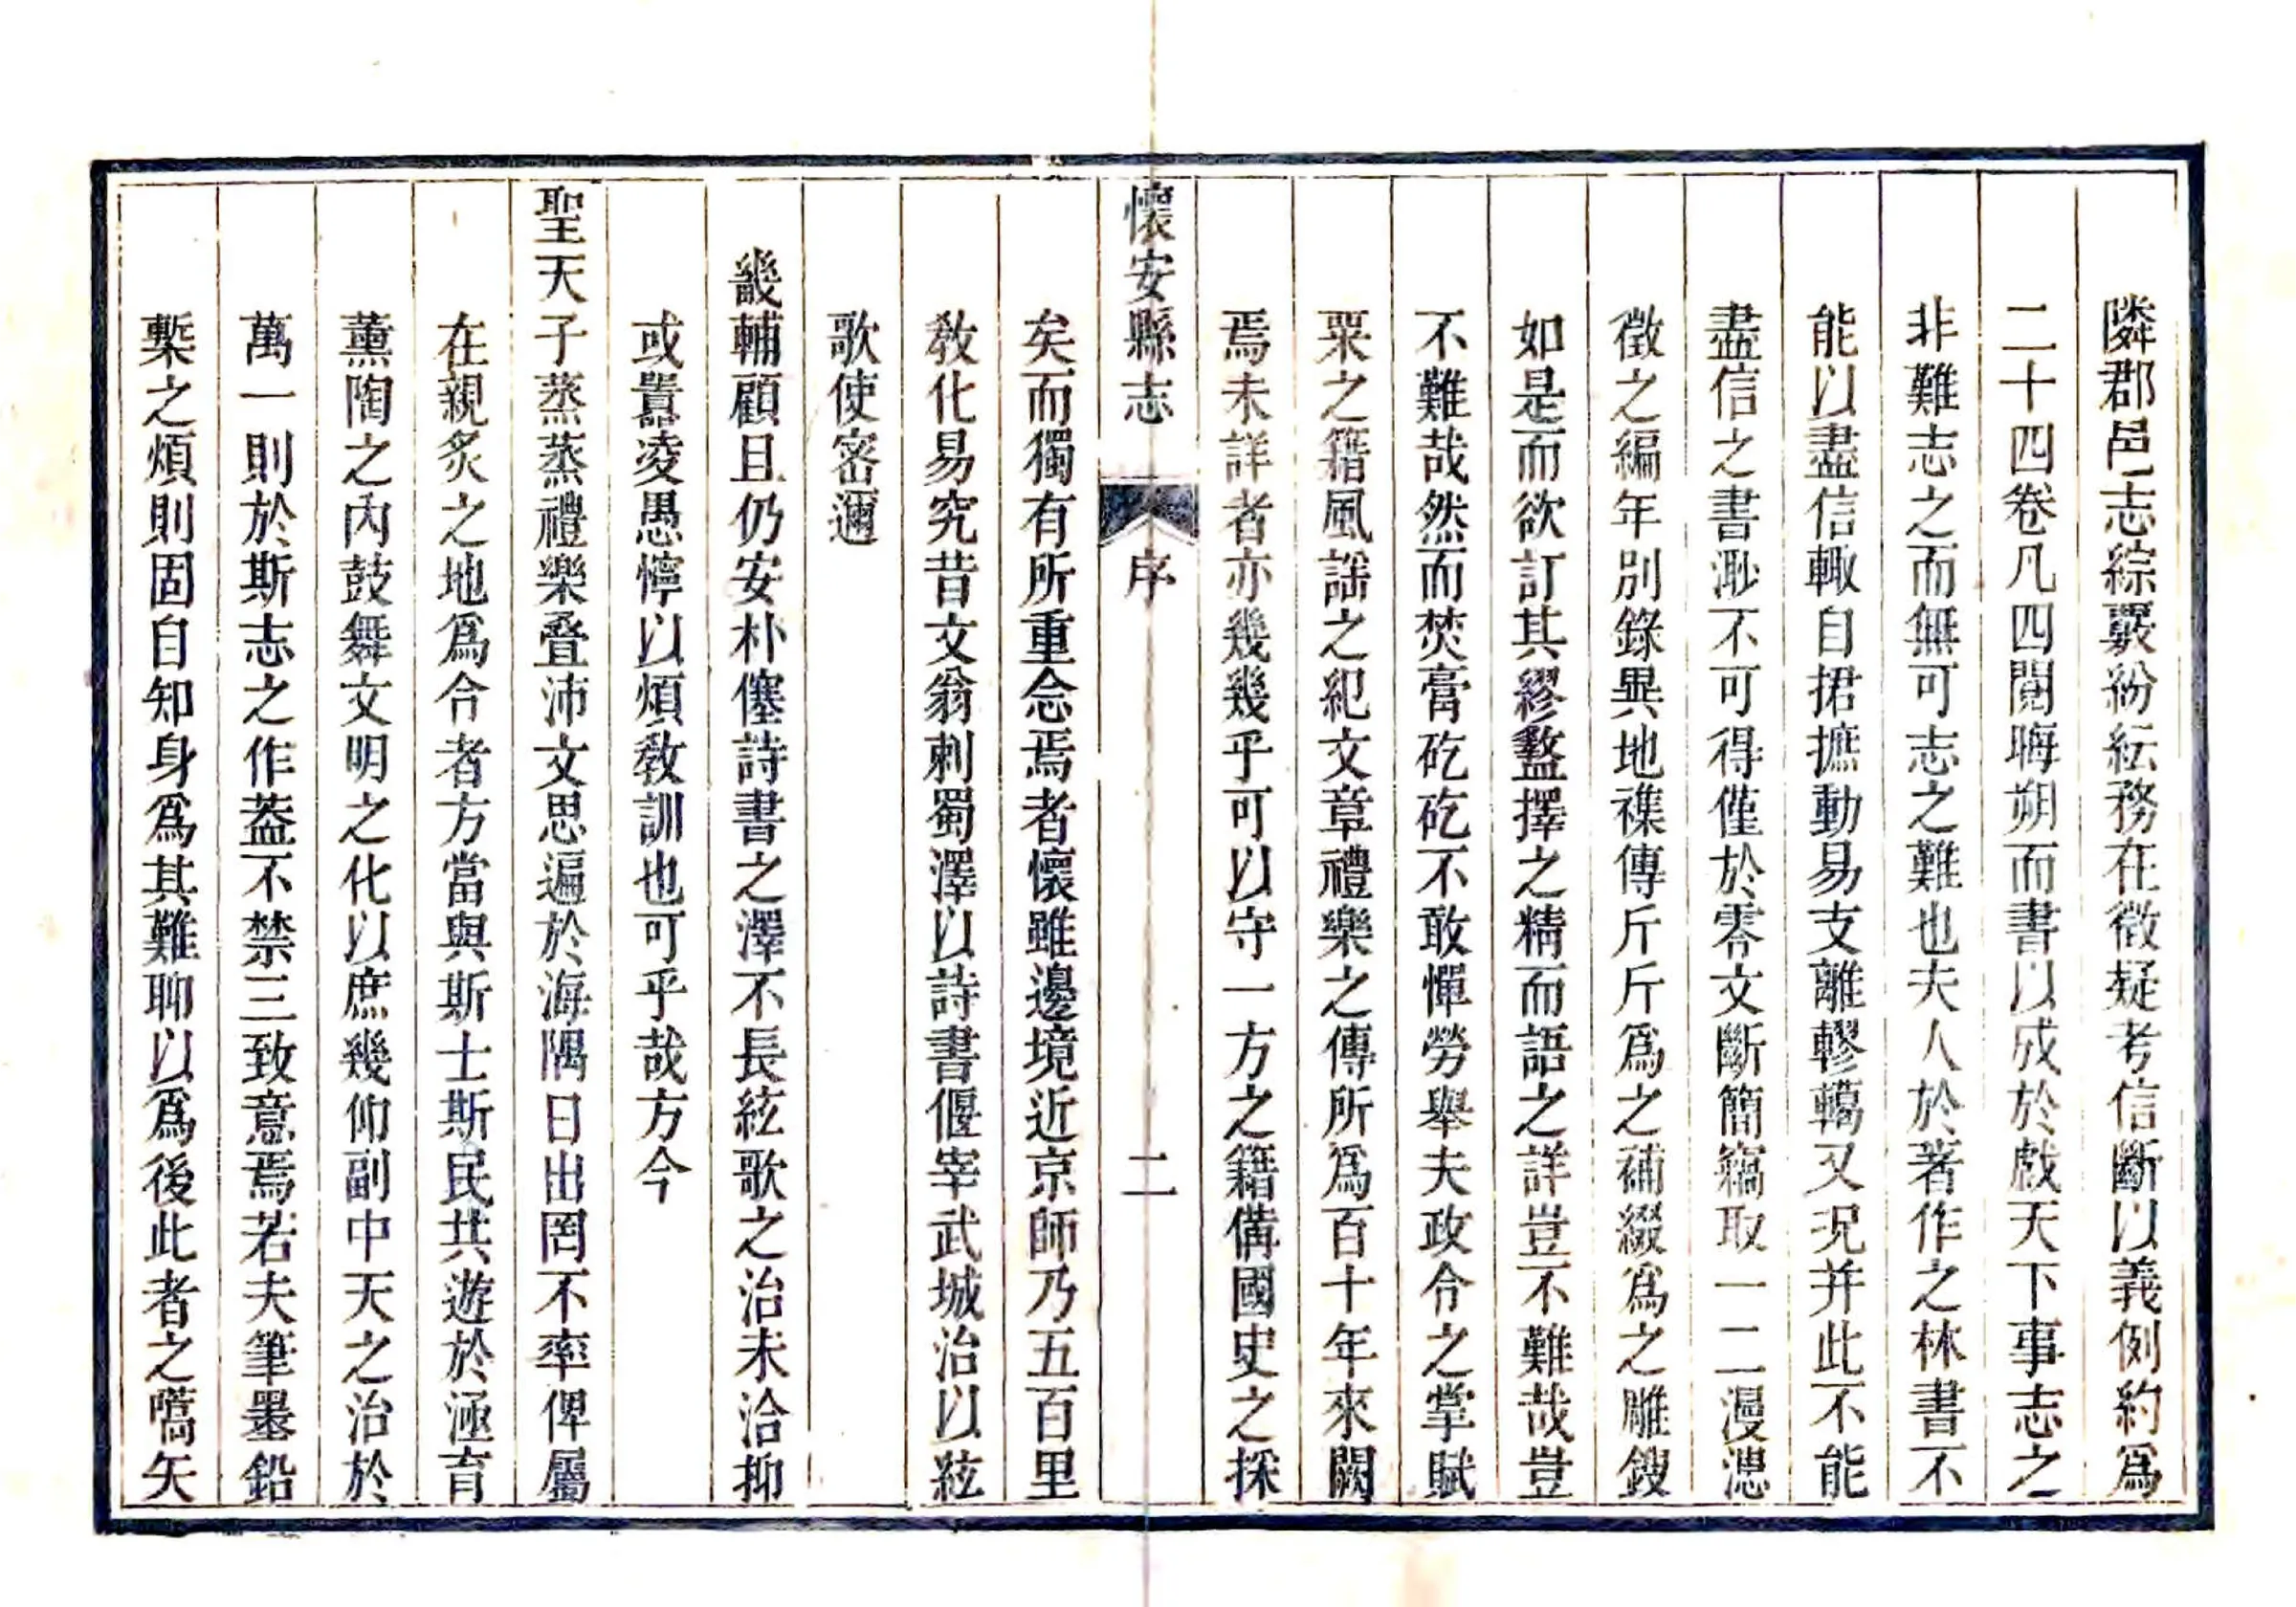 隣郡邑志綜覈紛紜務在徵疑考信斷以義例約爲
二十四卷凡四閱晦朔而書以成於戲天下事志之
非難志之而無可志之難也夫人於著作之林書不
能以盡信輙自捃摭動易支離轇轕又况并此不能
盡信之書渺不可得僅於零文斷簡竊取一二漫漶
徵之編年別錄異地襍傳斤斤爲之補綴爲之雕鎪
如是而欲訂其繆盭擇之精而語之詳豈不難哉豈
不難哉然而焚膏矻矻不敢憚勞舉夫政令之掌賦
粟之籍風謡之紀文章禮樂之傳所爲百十年來闕
焉未詳者亦幾幾乎可以守一方之籍備國史之採
懷安縣志 序 二
矣而獨有所重念焉者懷雖邊境近京師乃五百里
敎化易究昔文翁刺蜀澤以詩書偃宰武城治以絃
歌使密邇
畿輔顧且仍安朴僿詩書之澤不長絃歌之治未洽抑
或囂凌愚懧以煩敎訓也可乎哉方今
聖天子蒸蒸禮樂叠沛文思遍於海隅日出罔不率俾屬
在親炙之地爲令者方當與斯士斯民共遊於涵育
薰陶之內鼓舞文明之化以庶幾仰副中天之治於
萬一則於斯志之作葢不禁三致意焉若夫筆墨鉛
槧之煩則固自知身爲其難聊以爲後此者之嚆矢